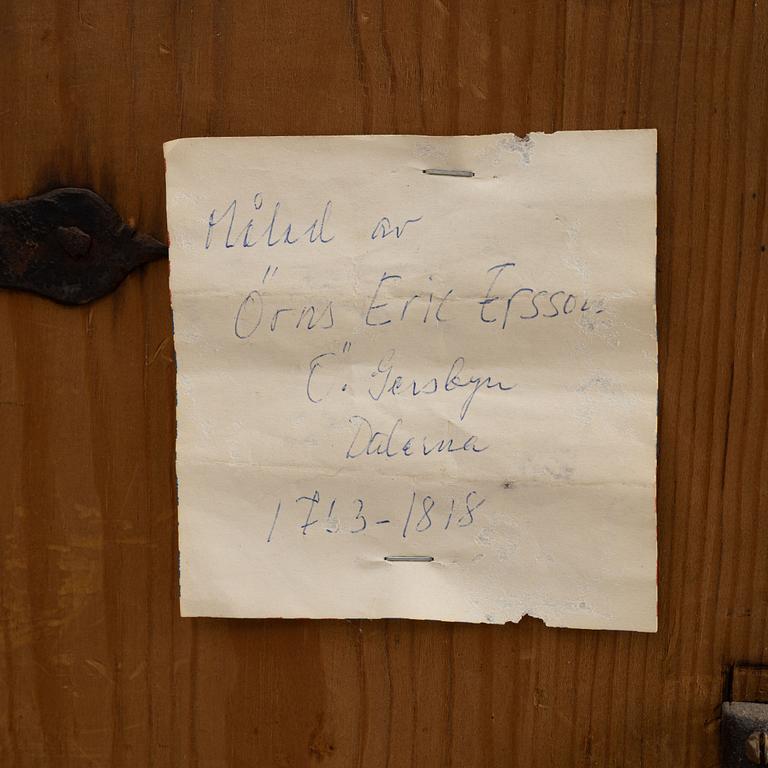 Målad av
Örns Eric Ersson
Ö. Gersbyn
Dalarna
1753-1818